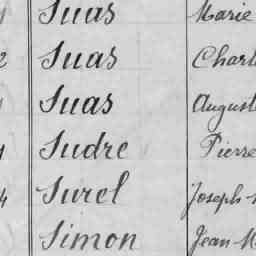 Suas Marie
2 Suas Charl
Suas August
Sudre Pierre
4 Surel Joseph
Simon Jean M